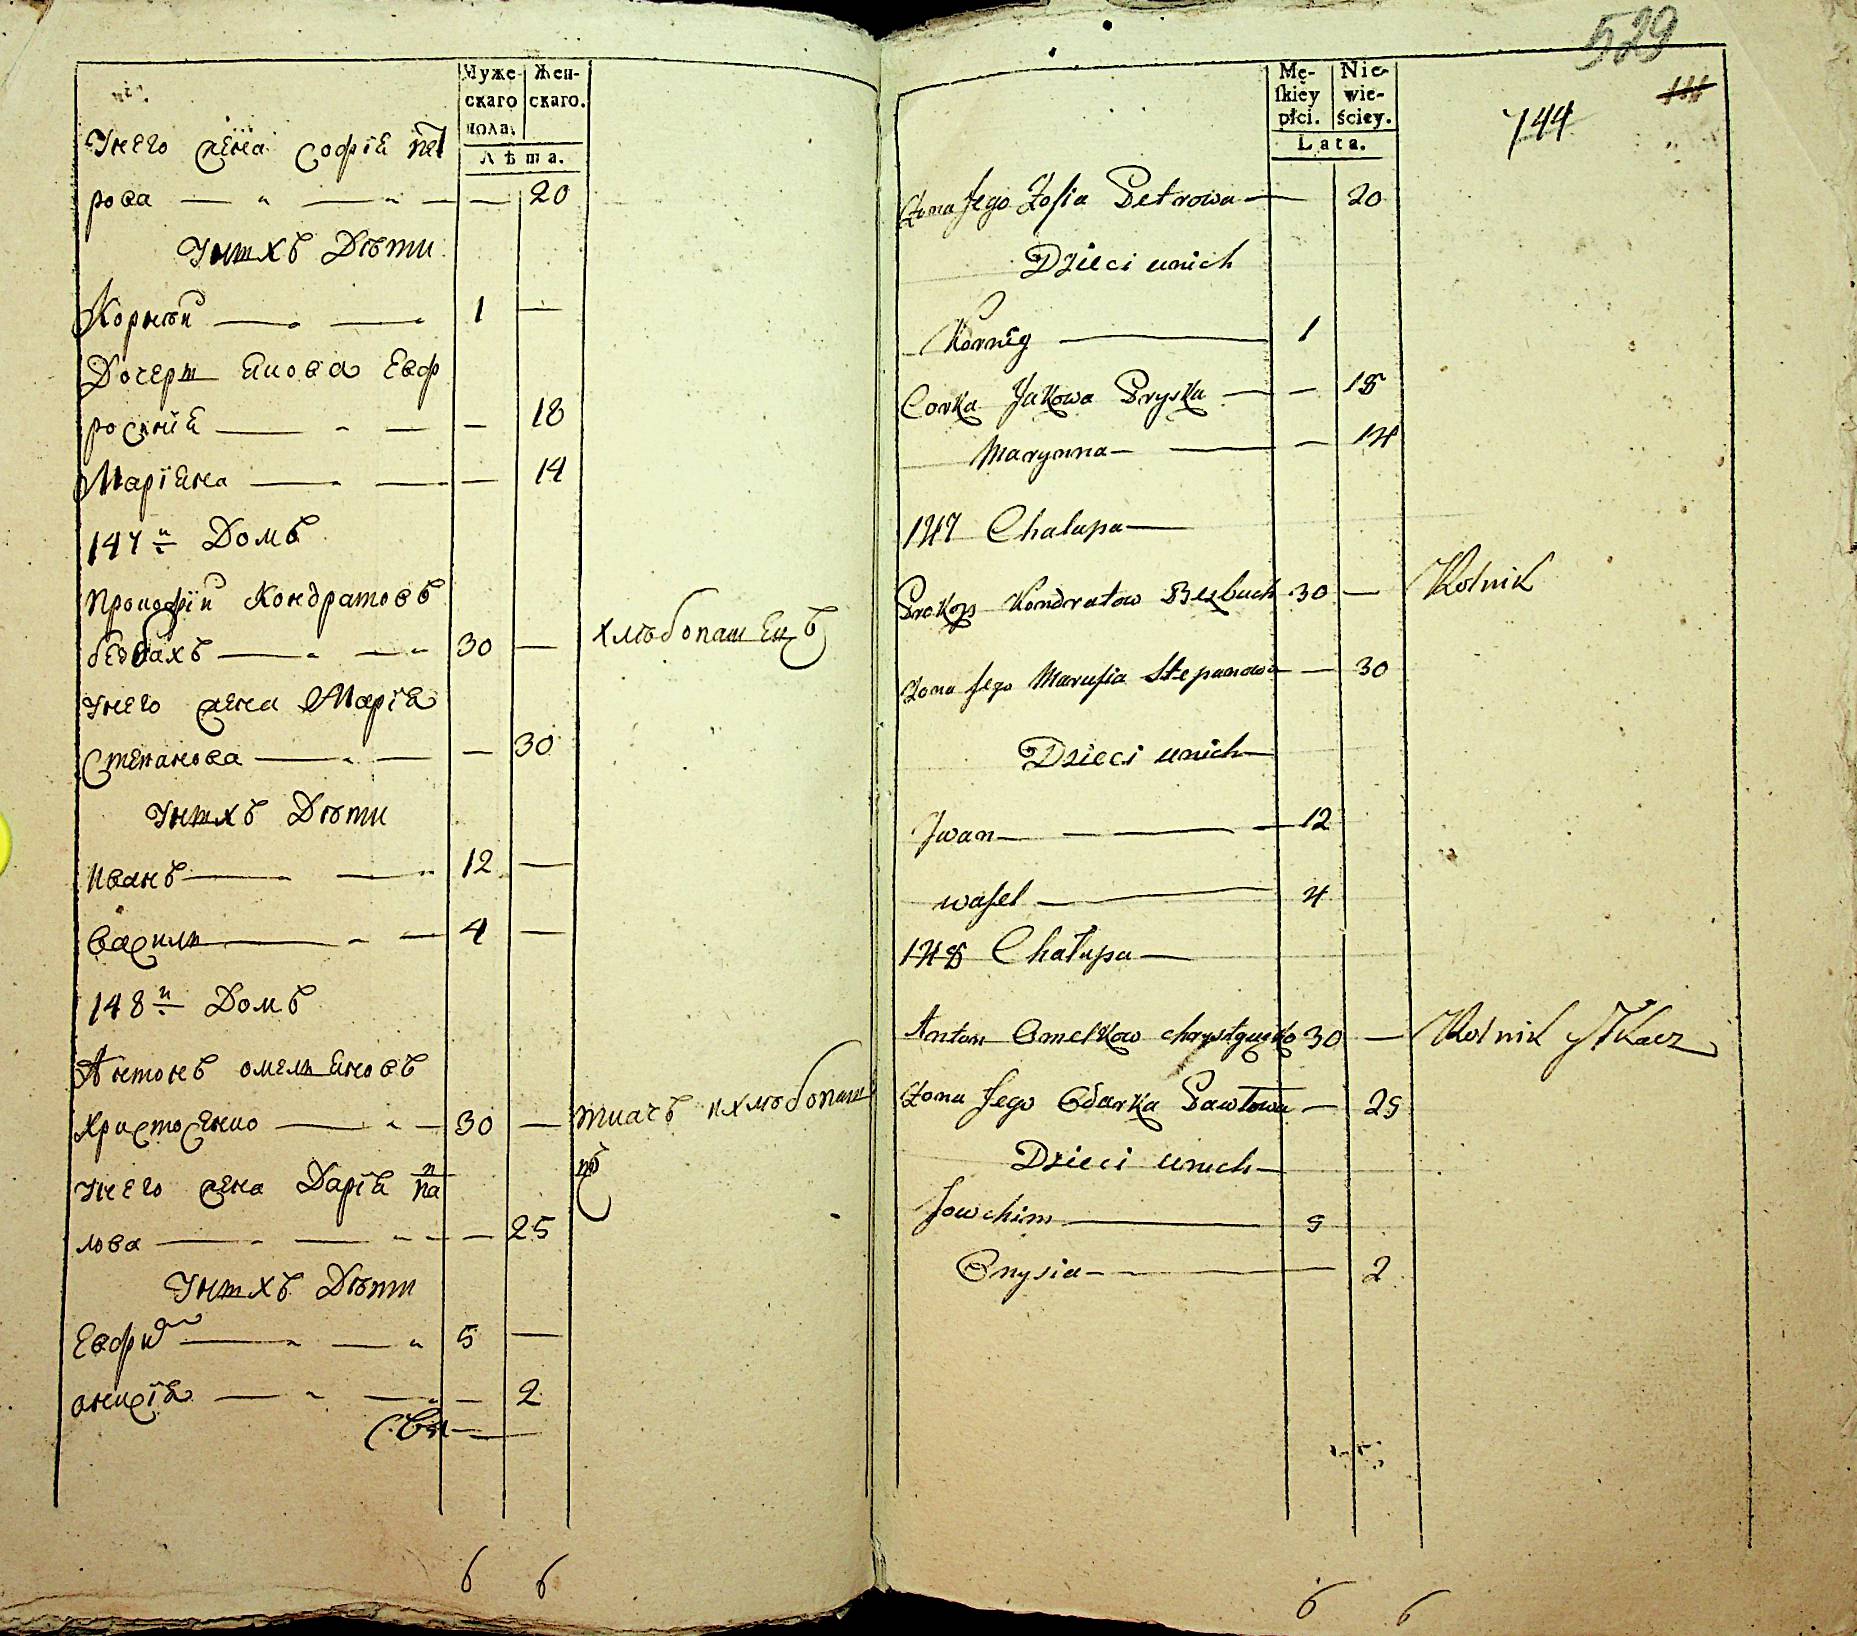 Муже-
скаго
пола.
Жен-
скаго.
Лѣта.
Унего жена Софія Пет
рова — — — 20
Унихъ Дѣти
Корнѣй — — 1 —
Дочери Якова Евф
росинія — — — 18
Маріяна — — — 14
147й Домъ
Прокофій Кондратовъ
безбахъ — — 30 — хлѣбопашецъ
Унего жена Марія
Степанова — — — 30
Унихъ Дѣти
Иванъ — — 12 —
Василь — — 4 —
148й Домъ
Антонъ омельяновъ
Христосенко — — 30 — ткачъ ихлѣбопаш
Унего жена Дарія Па
лова — — — 25
Унихъ Дѣти
Евфим — — 5 —
анисія — — — 2
6 6
529
744
Mę-
skiey
płci.
Nie-
wie-
ściey.
Lata.
Żona Jego Zofia Petrowa — 20
Dzieci unich
Korniey — 1
Corka Jakowa Pryska — — 18
Marynna — — — 14
147 Chałupa —
Prokop Kondratow Bezbuch 30 — Rolnik
Żona Jego Marusia Stepanowa — 30
Dzieci unich —
Jwan — — — 12
wasel — — 4
148 Chałupa —
Anton Omelkow 30 — Rolnik y Tkacz
Żona Jego Odarka Pawłowa — 25
Dzieci unich —
Jowchim — 5
Onysia — — — 2
6 6